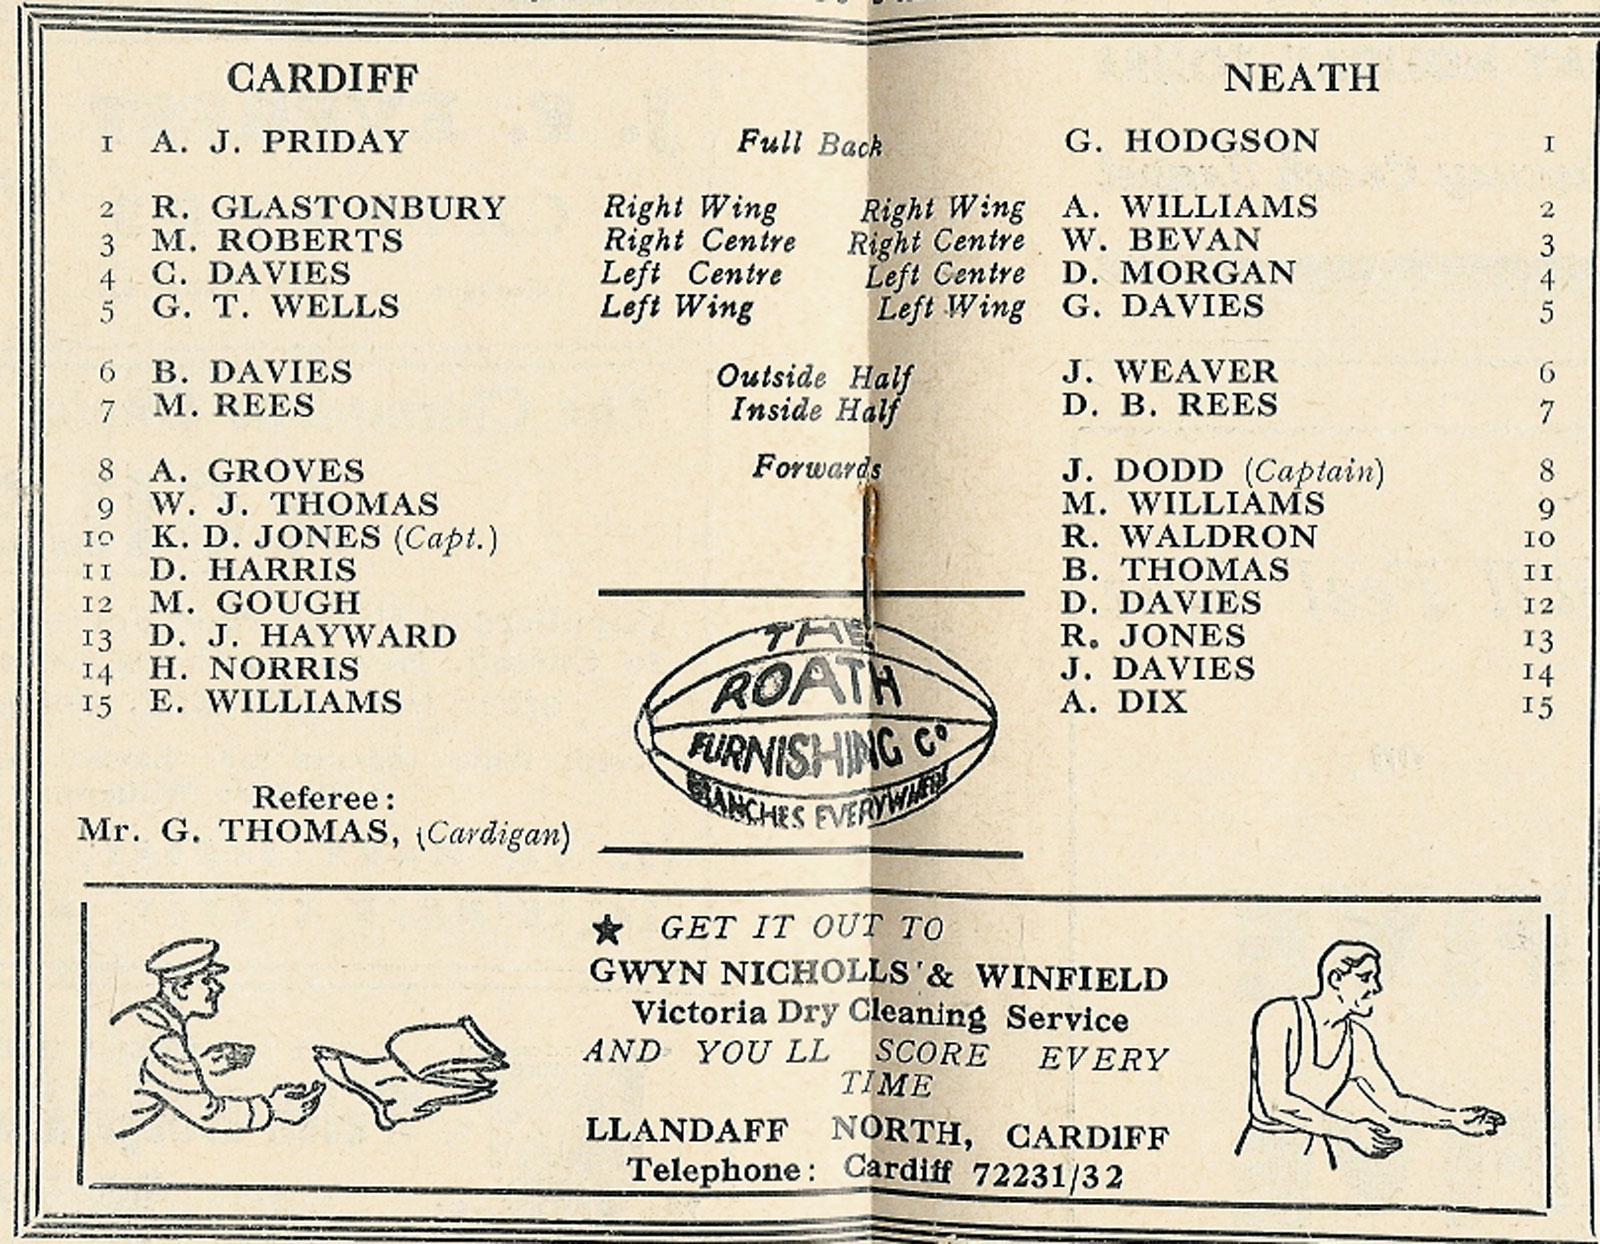 CARDIFF NEATH
1 A. J. PRIDAY Full Back G. HODGSON 1
2 R. GLASTONBURY Right Wing Right Wing A. WILLIAMS 2
3 M. ROBERTS Right Centre Right Centre W. BEVAN 3
4 C. DAVIES Left Centre Left Centre D. MORGAN 4
5 G. T. WELLS Left Wing Left Wing G. DAVIES 5
6 B. DAVIES Outside Half J. WEAVER 6
7 M. REES Inside Half D. B. REES 7
8 A. GROVES Forwards J. DODD (Captain) 8
9 W. J. THOMAS M. WILLIAMS 9
10 K. D. JONES (Capt.) R. WALDRON 10
11 D. HARRIS B. THOMAS 11
12 M. GOUGH D. DAVIES 12
13 D. J. HAYWARD R. JONES 13
14 H. NORRIS J. DAVIES 14
15 E. WILLIAMS A. DIX 15
THE
ROATH
FURNISHING Co
BRANCHES EVERYWHERE
Referee:
Mr. G. THOMAS, (Cardigan)
★ GET IT OUT TO
GWYN NICHOLLS' & WINFIELD
Victoria Dry Cleaning Service
AND YOU LL SCORE EVERY
TIME
LLANDAFF NORTH, CARDIFF
Telephone: Cardiff 72231/32